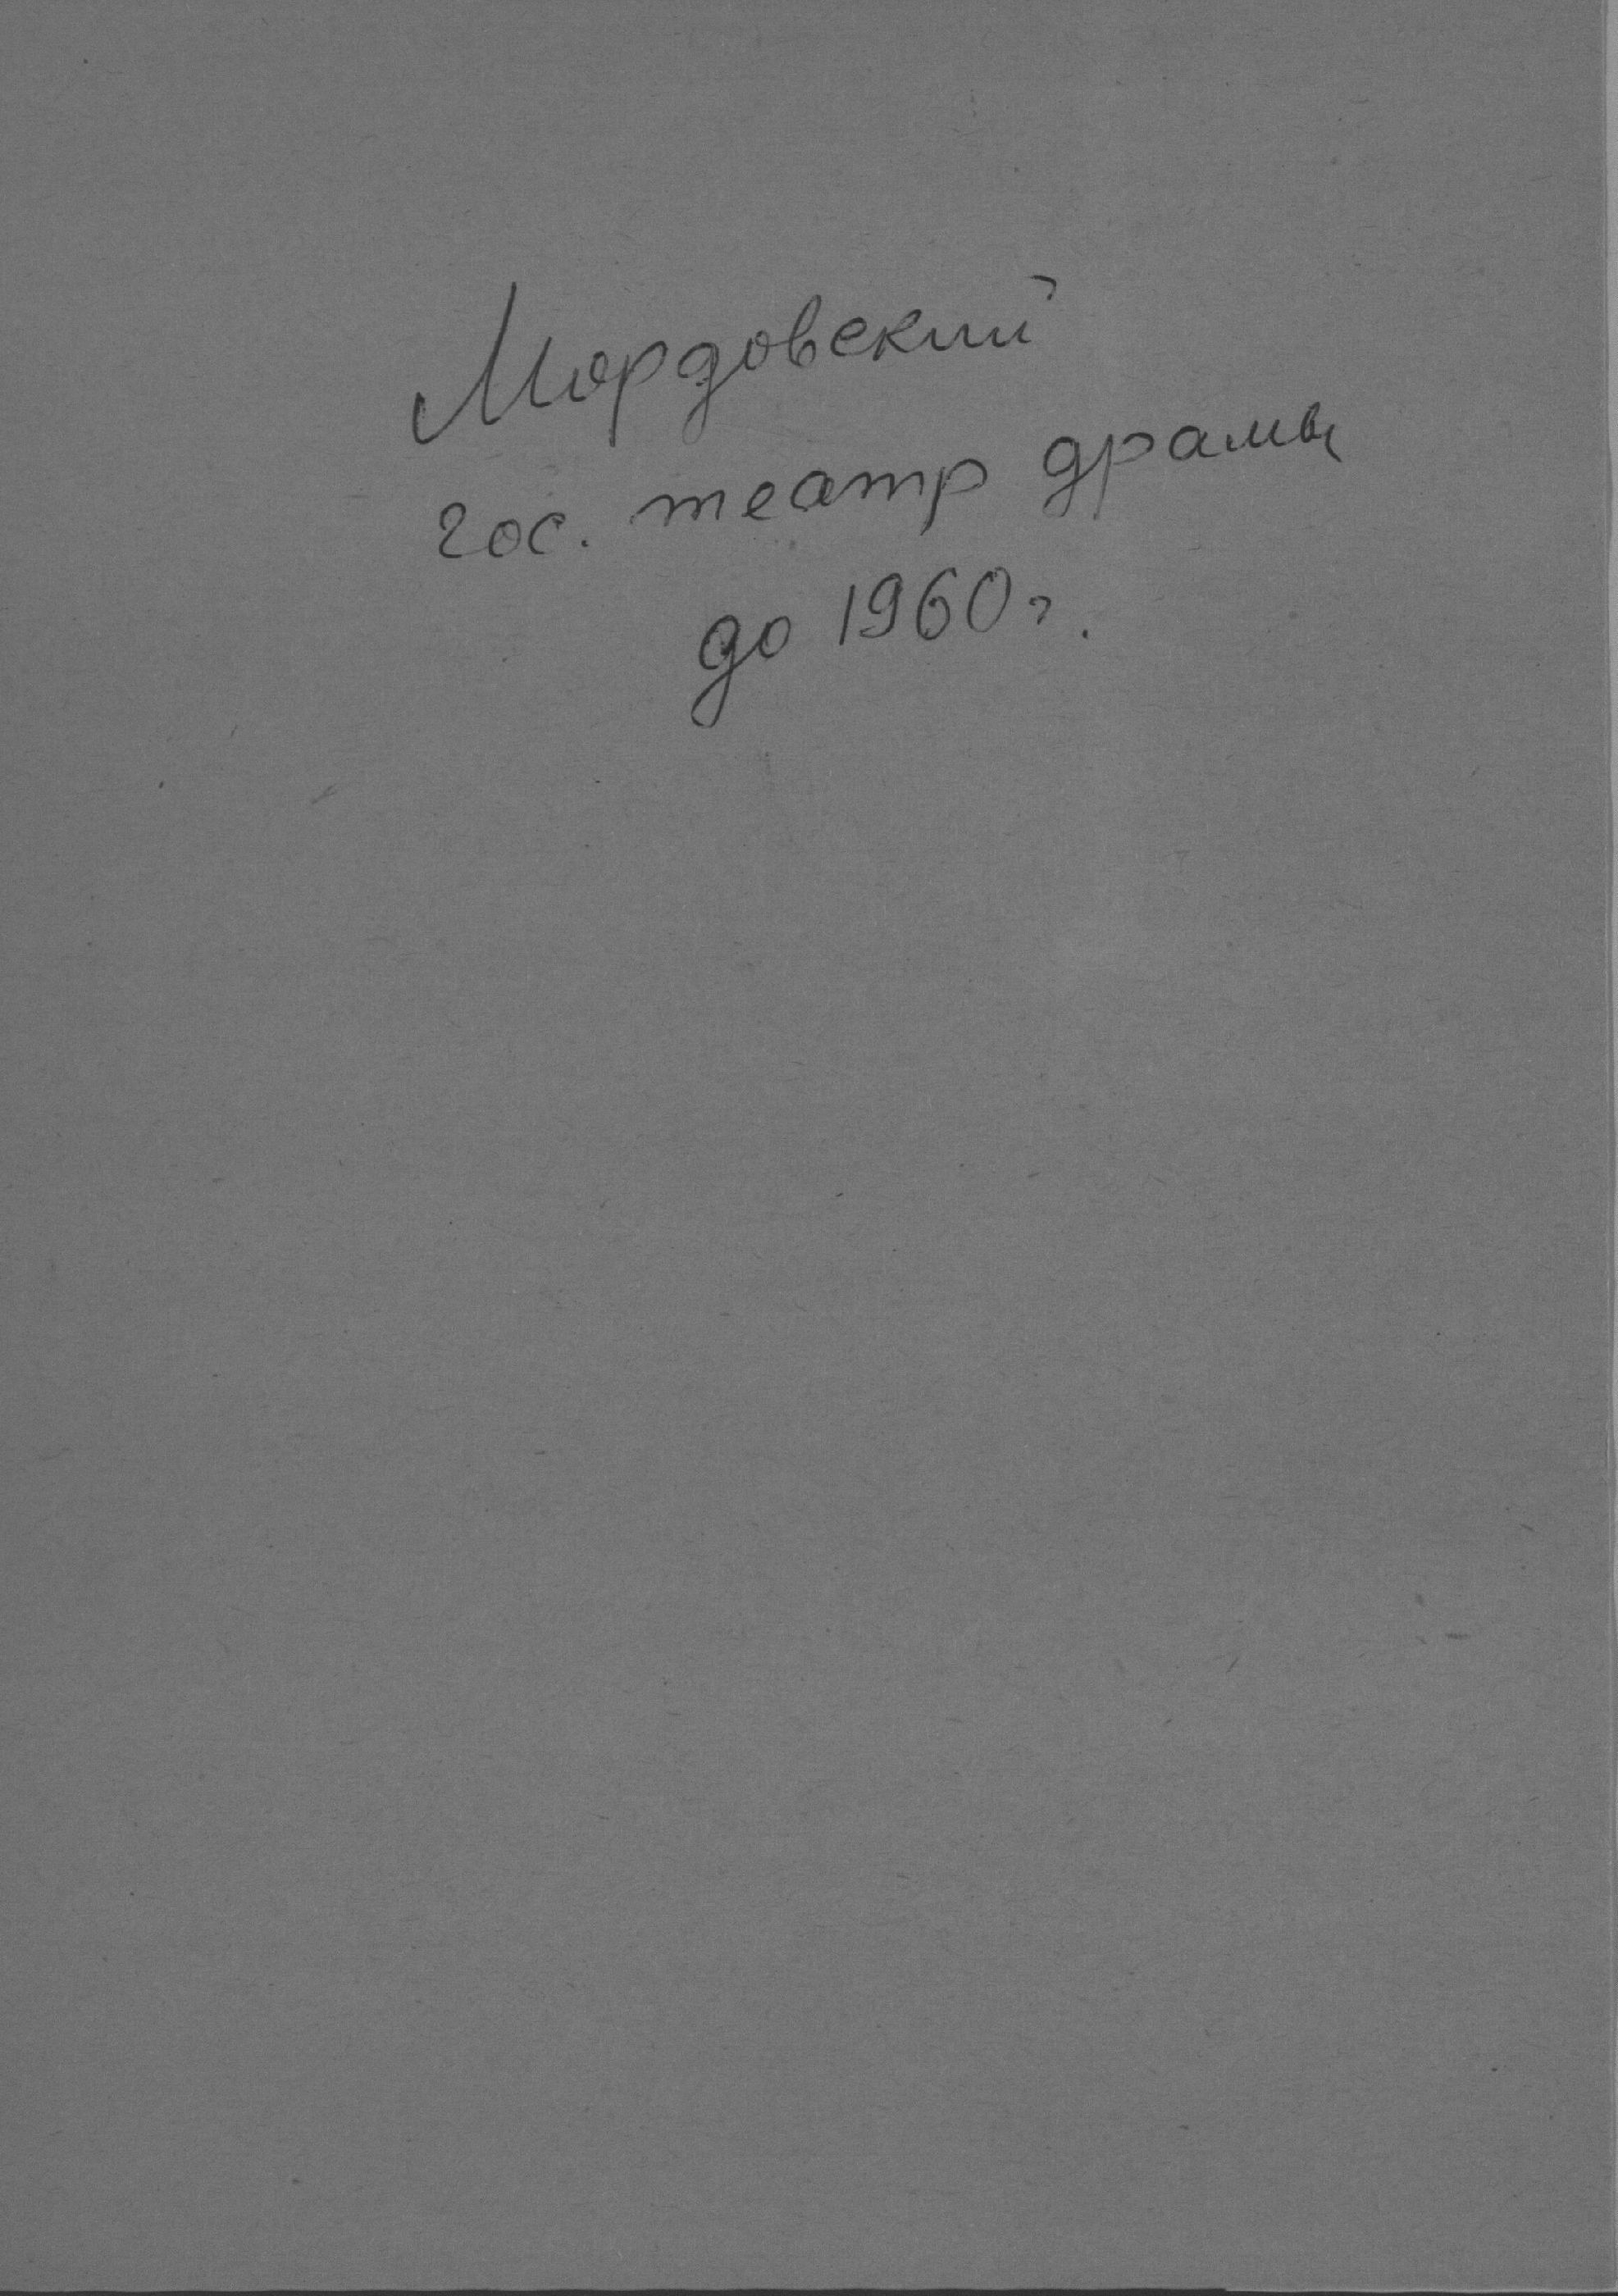 Мордовский
гос. театр драмы
до 1960 г.